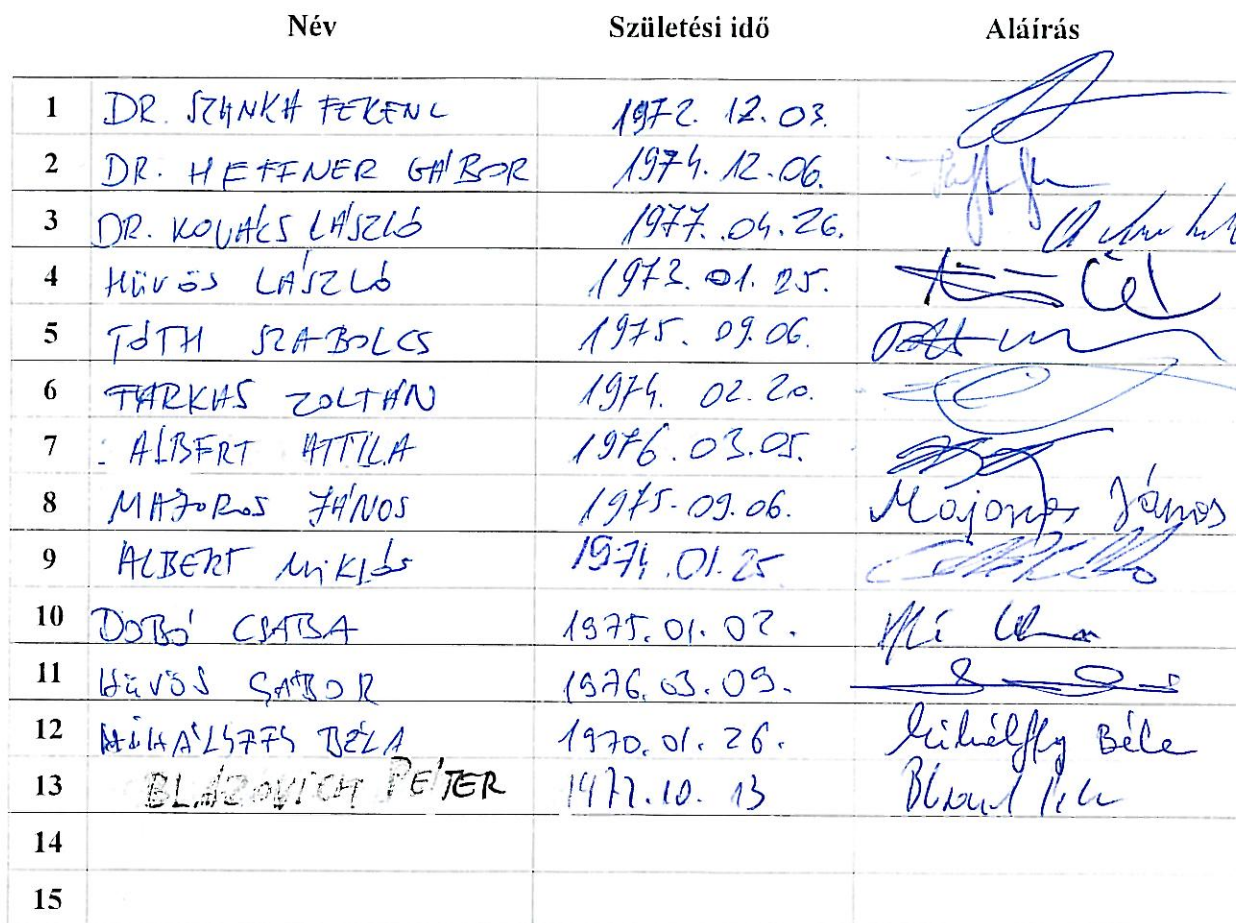 Név Születési idő Aláírás
1 DR. SZANKA FERENC 1972. 12. 03.
2 DR. HEFFNER GÁBOR 1974. 12. 06.
3 DR. KOVÁCS LÁSZLÓ 1977. 04. 26.
4 HŰVÖS LÁSZLÓ 1973. 01. 25.
5 TÓTH SZABOLCS 1975. 09. 06.
6 FARKAS ZOLTÁN 1974. 02. 20.
7 ALBERT ATTILA 1976. 03. 05.
8 MAJOROS JÁNOS 1975. 09. 06. Majoros János
9 ALBERT MIKLÓS 1974. 01. 25
10 DOBÓ CSABA 1975. 01. 02.
11 HŰVÖS GÁBOR 1976. 03. 09.
12 MIHÁLYFFY BÉLA 1970. 01. 26. Mihályffy Béla
13 BLÁZOVICH PÉTER 1977. 10. 13
14
15